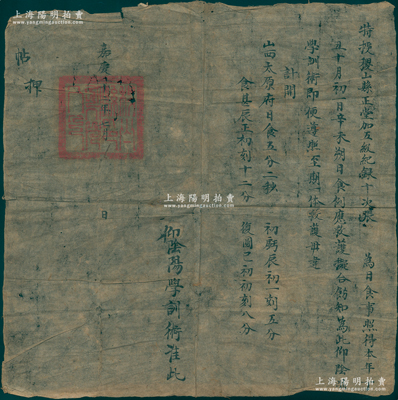 上海陽明拍賣
特授襄山縣正堂加五級紀錄十次張 為日食事照得本年
五十月初一日辛未朔日食例應救護擬合飭知為此仰陰
學訓術即便遵照至期一體救護毋違
計開
山西太原府日食五分二秒 初虧辰初一刻五分
食甚辰正初刻十二分 復圓巳初初刻八分
仰陰陽學訓術准此
嘉慶 年七月 日
押
上海陽明拍賣
www.yangmingauction.com
上海陽明拍賣